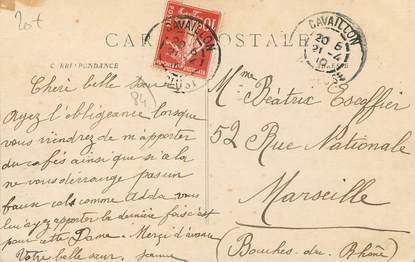 20t
CARTE POSTALE
CORRESPONDANCE
CAVAILLON
CAVAILLON
20 5
21 -4
10
84
Chère belle sœur
Ayez l'obligeance lorsque
vous viendrez de m'apporter
du cafés ainsi que si à la
ne vous dérrange pas un
faux cols comme Adda vous
lui ayez apporter la dernière fois c'est
pour cette Dame. Merci d'avance
Votre belle sœur, Jeanne
Mme Béatrix Escoffier
52 Rue Nationale
Marseille
(Bouches-du-Rhône)